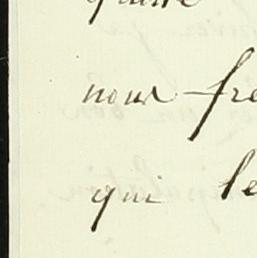 nous fre
qui le